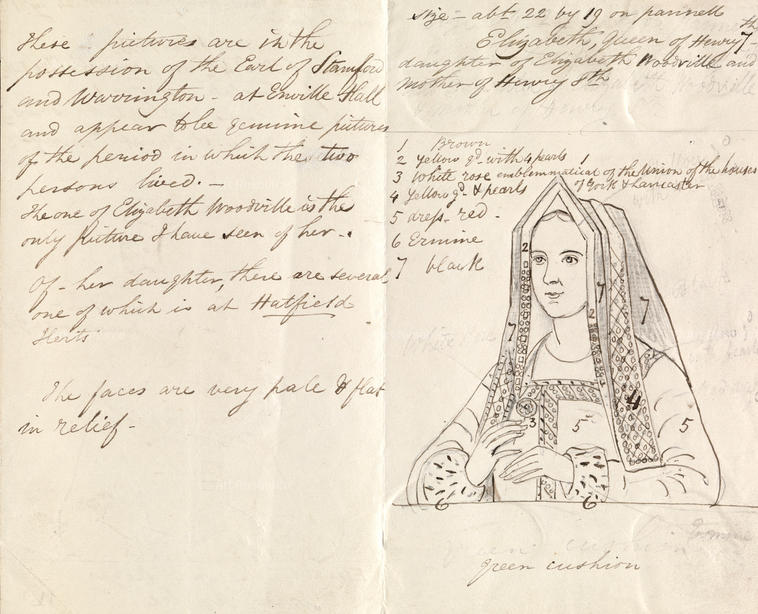 These pictures are in the
possession of the Earl of Stamford
and Warrington - at Enville Hall
and appear to be genuine pictures
of the period in which the two
persons lived. -
The one of Elizabeth Woodville is the
only picture I have seen of her -.
Of - her daughter, there are several
one of which is at Hatfield
Herts
The faces are very pale & flat
in relief -
Size - abt 22 by 19 on pannell
Elizabeth, Queen of Henry 7th -
daughter of Elizabeth Woodville and
mother of Henry 8th
1 Brown
2 Yellow gd. with 4 pearls 1
3 White rose emblemmatical of the Union of the houses
of York & Lancaster
4 Yellow gd. & pearls
5 red -
6 Ermine
7 black
2
7
2
7
7
4
3
5
5
6
6
green cushion